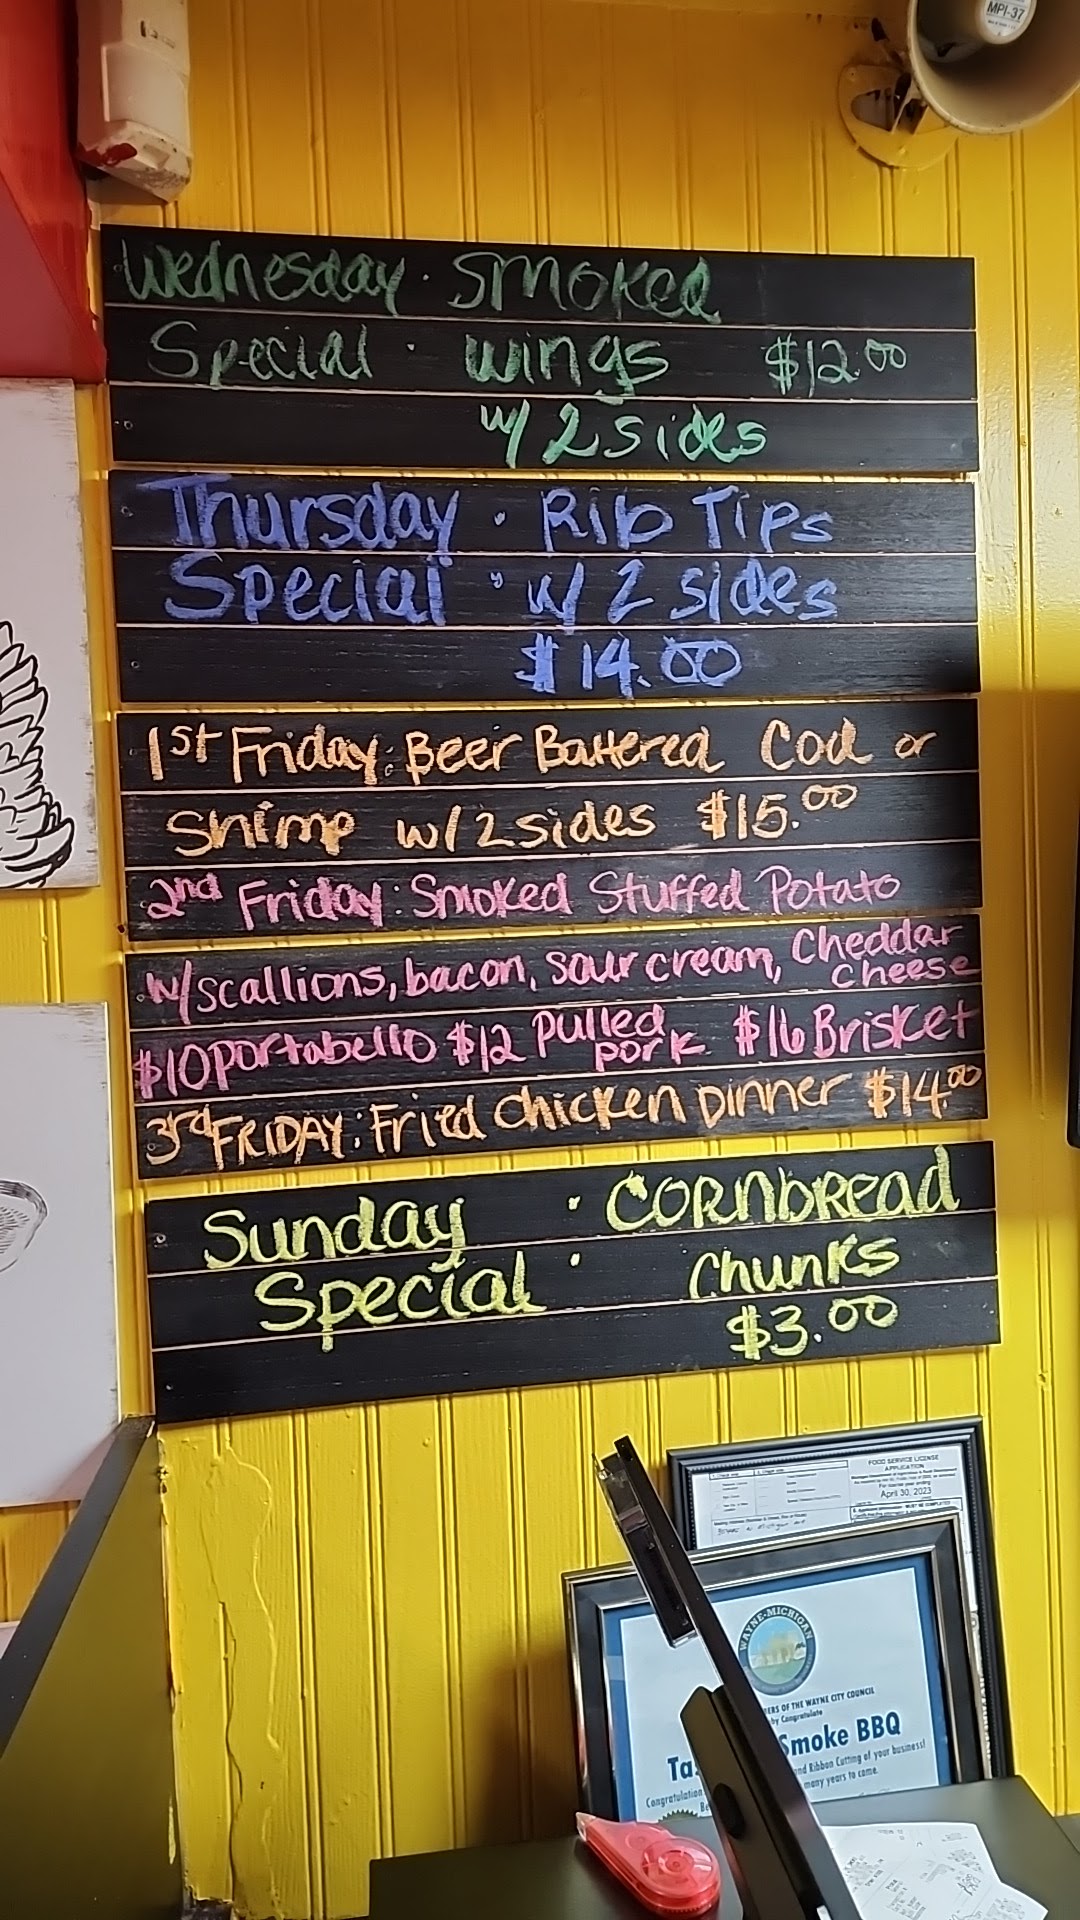 MPI-37
Wednesday · Smoked
Special · Wings $12.00
w/ 2 sides
Thursday · Rib Tips
Special · w/ 2 sides
$14.00
1st Friday: Beer Battered Cod or
Shimp w/ 2 sides $15.00
2nd Friday: Smoked Stuffed Potato
w/ scallions, bacon, sour cream, Cheddar
Cheese
$10 Portabello $12 Pulled
pork $16 Brisket
3rd FRIDAY: Fried Chicken Dinner $14.00
Sunday · CORNbREad
Special · Chunks
$3.00
FOOD SERVICE LICENSE
APPLICATION
April 30, 2023
WAYNE-MICHIGAN
OF THE WAYNE CITY COUNCIL
by Congratulate
Smoke BBQ
Ribbon Cutting of your business!
many years to come.